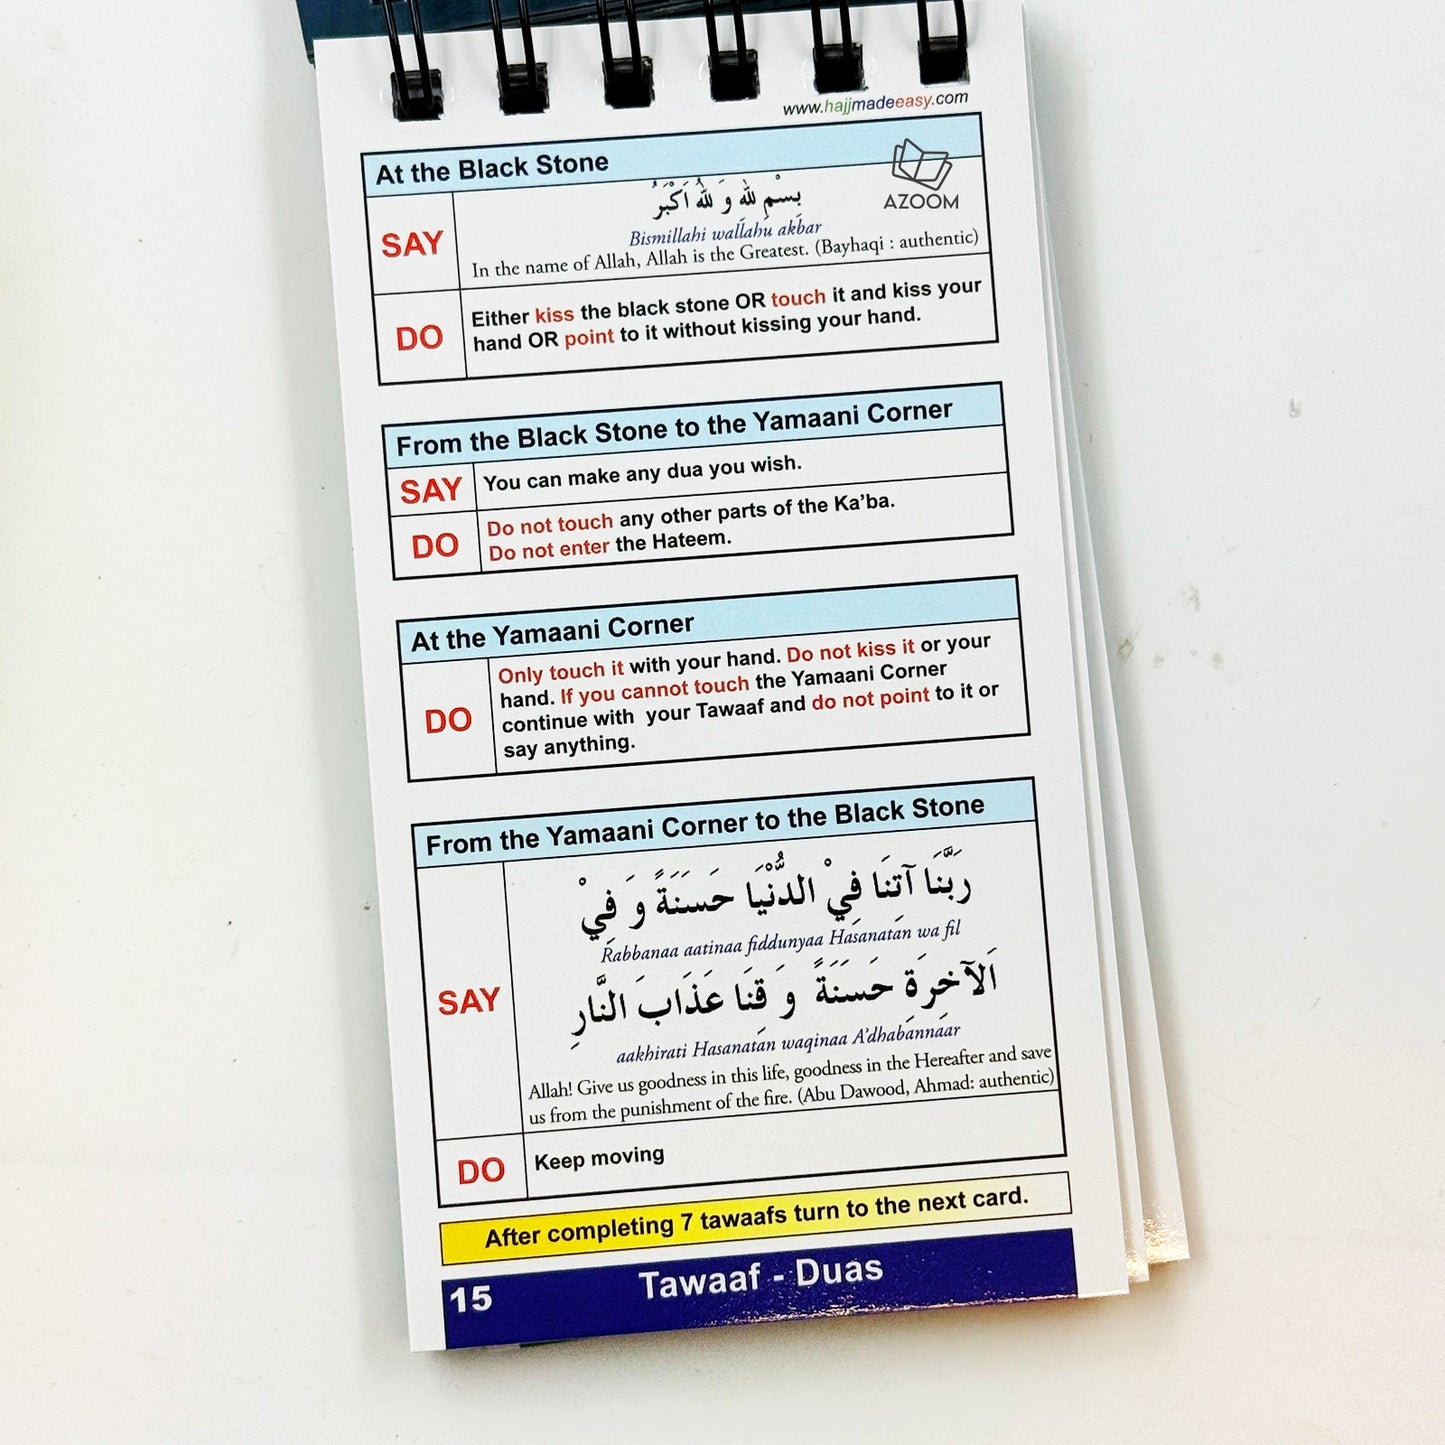 www.hajjmadeeasy.com
At the Black Stone
AZOOM
SAY
بِسْمِ للهِ وَ للهُ اَكْبَرُ
Bismillahi wallahu akbar
In the name of Allah, Allah is the Greatest. (Bayhaqi : authentic)
DO
Either kiss the black stone OR touch it and kiss your
hand OR point to it without kissing your hand.
From the Black Stone to the Yamaani Corner
SAY
You can make any dua you wish.
DO
Do not touch any other parts of the Ka’ba.
Do not enter the Hateem.
At the Yamaani Corner
DO
Only touch it with your hand. Do not kiss it or your
hand. If you cannot touch the Yamaani Corner
continue with your Tawaaf and do not point to it or
say anything.
From the Yamaani Corner to the Black Stone
SAY
رَبَّنَا آتنَا فيْ الدُّنْيَا حَسَنَةً وَ فِيْ
Rabbanaa aatinaa fiddunyaa Hasanatan wa fil
اَلآخرَة حَسَنَةً وَ قنَا عَذَابَ النَّارِ
aakhirati Hasanatan waqinaa A’dhabannaar
Allah! Give us goodness in this life, goodness in the Hereafter and save
us from the punishment of the fire. (Abu Dawood, Ahmad: authentic)
DO
Keep moving
After completing 7 tawaafs turn to the next card.
15
Tawaaf - Duas